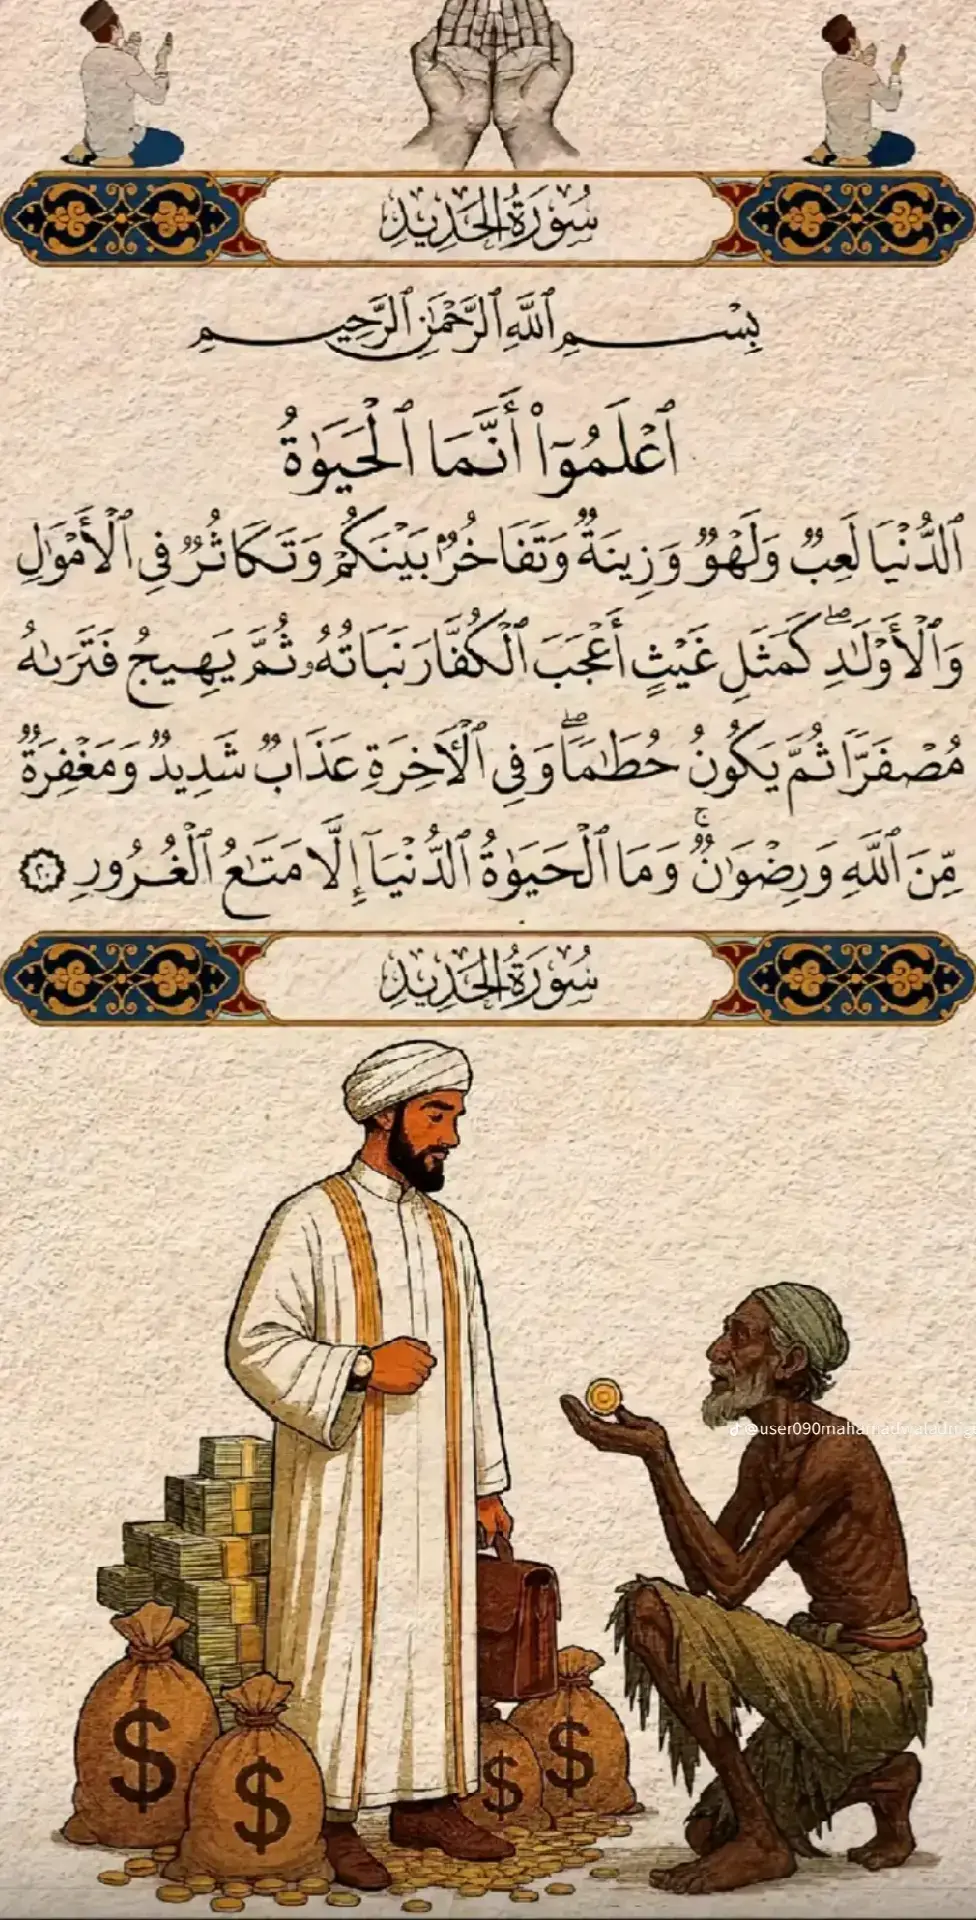 سُورَةُ الحَدِيدِ
بِسْمِ ٱللَّهِ ٱلرَّحْمَٰنِ ٱلرَّحِيمِ
ٱعْلَمُوٓا۟ أَنَّمَا ٱلْحَيَوٰةُ
ٱلدُّنْيَا لَعِبٌ وَلَهْوٌ وَزِينَةٌ وَتَفَاخُرٌۢ بَيْنَكُمْ وَتَكَاثُرٌ فِى ٱلْأَمْوَٰلِ
وَٱلْأَوْلَٰدِ ۖ كَمَثَلِ غَيْثٍ أَعْجَبَ ٱلْكُفَّارَ نَبَاتُهُۥ ثُمَّ يَهِيجُ فَتَرَىٰهُ
مُصْفَرًّا ثُمَّ يَكُونُ حُطَٰمًا ۖ وَفِى ٱلْءَاخِرَةِ عَذَابٌ شَدِيدٌ وَمَغْفِرَةٌ
مِّنَ ٱللَّهِ وَرِضْوَٰنٌ ۚ وَمَا ٱلْحَيَوٰةُ ٱلدُّنْيَآ إِلَّا مَتَٰعُ ٱلْغُرُورِ ٢٠
سُورَةُ الحَدِيدِ
$
$
$
$